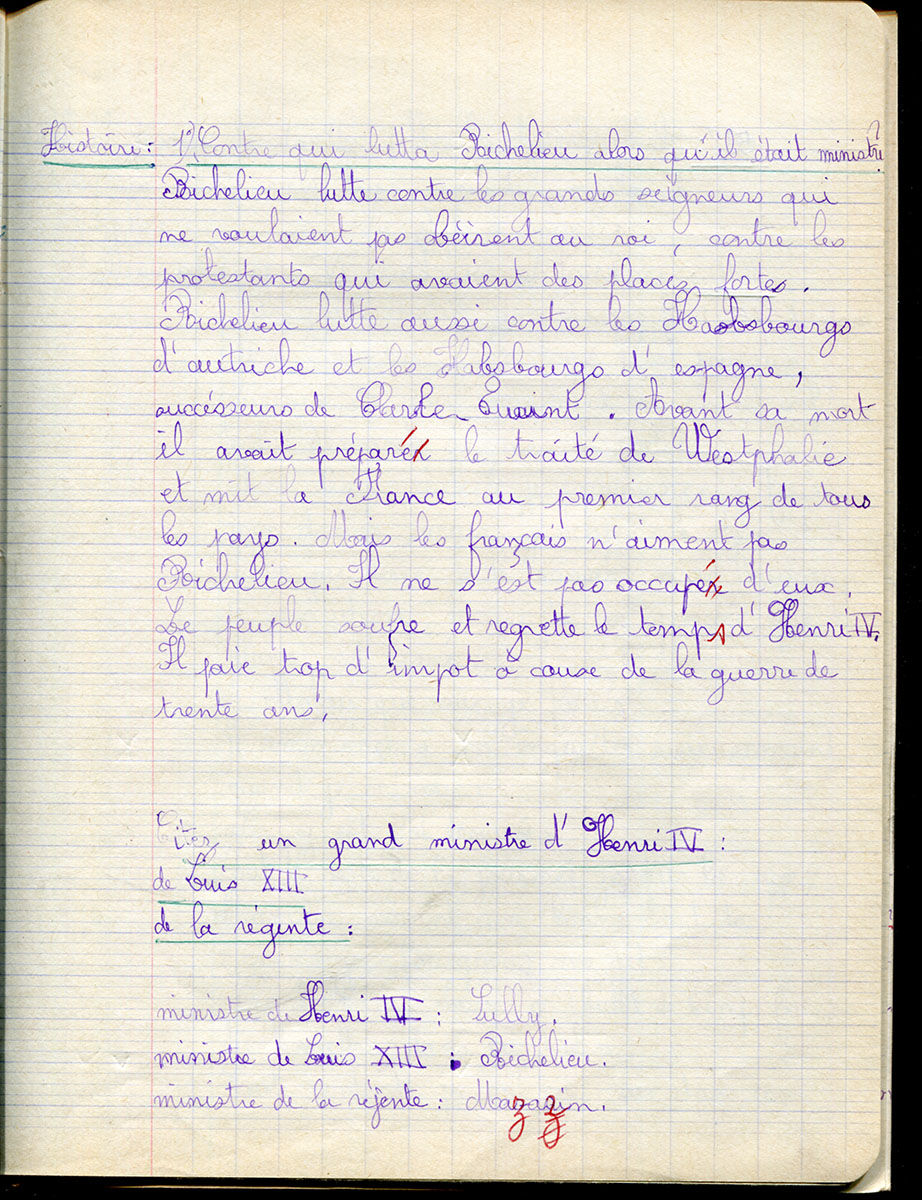 Histoire: 1°) Contre qui lutta Richelieu alors qu'il était ministre ?
Richelieu lutte contre les grands seigneurs qui
ne voulaient pas obéirent au roi, contre les
protestants qui avaient des places fortes.
Richelieu lutte aussi contre les Habsbourgs
d'autriche et les Habsbourgs d'espagne,
succésseurs de Charle Quint. Avant sa mort
il avait préparé le traité de Westphalie
et mit la France au premier rang de tous
les pays. Mais les français n'aiment pas
Richelieu. Il ne s'est pas occupé d'eux.
Le peuple soufre et regrette le temps d'Henri IV.
Il paie trop d'impot à cause de la guerre de
trente ans.
Citez un grand ministre d'Henri IV :
de Louis XIII
de la régente :
ministre de Henri IV : Sully.
ministre de Louis XIII : Richelieu.
ministre de la réjente : Mazarin.
z z